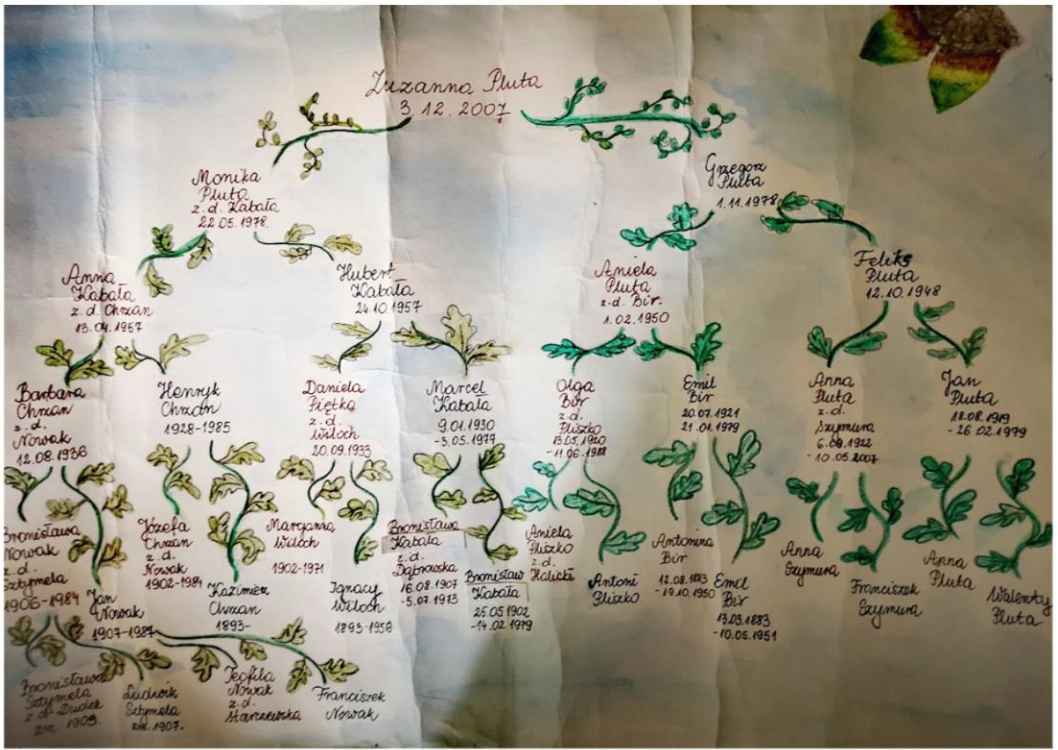 Zuzanna Pluta
3.12.2007
Monika
Pluta
z.d. Kabała
22.05.1978.
Grzegorz
Pluta
1.11.1978
Anna
Kabała
z.d. Chrzan
13.04.1957
Hubert
Kabała
24.10.1957
Aniela
Pluta
z.d. Bir.
1.02.1950
Feliks
Pluta
12.10.1948
Barbara
Chrzan
z.d.
Nowak
12.08.1936
Henryk
Chrzan
1928-1985
Daniela
Piętka
z.d.
Wiloch
20.09.1933
Marcel
Kabała
9.01.1930
-3.05.1977
Olga
Bir
z.d.
Pliszko
Emil
Bir
20.07.1921
21.01.1979
Anna
Pluta
z.d.
Szymura
-10.05.2007
Jan
Pluta
18.08.1919
-26.02.1979
Bronisława
Nowak
z.d.
Sztymela
1906-1984
Jan
Nowak
1907-1987
Józefa
Chrzan
z.d.
Nowak
1902-1984
Kazimierz
Chrzan
1893-
Marcjanna
Wiloch
1902-1971
Ignacy
Wiloch
1893-1958
Bronisława
Kabała
z.d.
Dąbrowska
16.08.1907
-5.07.1973
Bronisław
Kabała
25.05.1902
-14.02.1979
Aniela
Pliszko
z.d.
Halicki
Antoni
Pliszko
Antonina
Bir
12.08.1883
-19.10.1950
Emil
Bir
13.03.1883
-10.05.1951
Anna
Szymura
Franciszek
Szymura
Anna
Pluta
Walenty
Pluta
Bronisława
Sztymela
z.d. Dudek
zm. 1909.
Ludwik
Sztymela
zm. 1907.
Teofila
Nowak
z.d.
Starzewska
Franciszek
Nowak